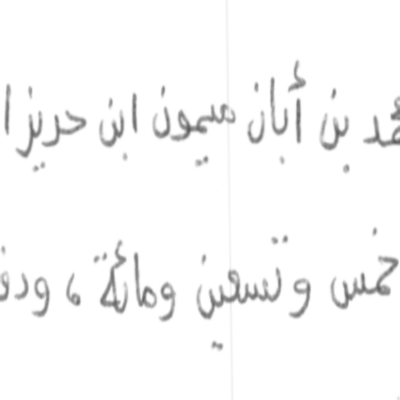 بن أبان ميمون ابن حريز
خمس وتسعين ومائة ، ود